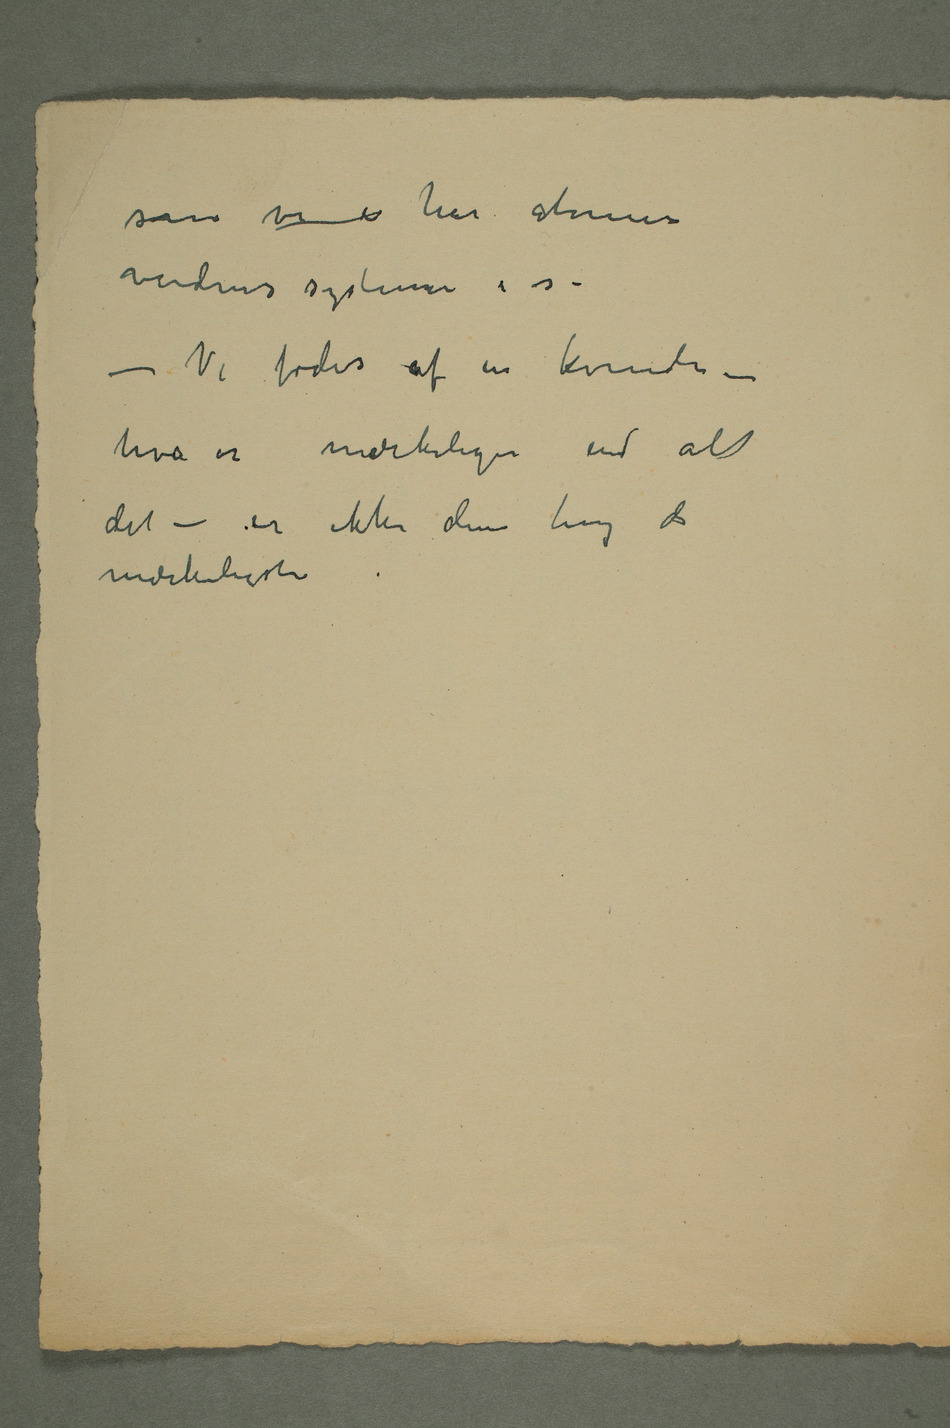 som vi har atomer
verdens systemer i s–
– Vi fødes af en kvinde –
hva er mærkeligere end alt
det – er ikke den ting d
mærkeligste